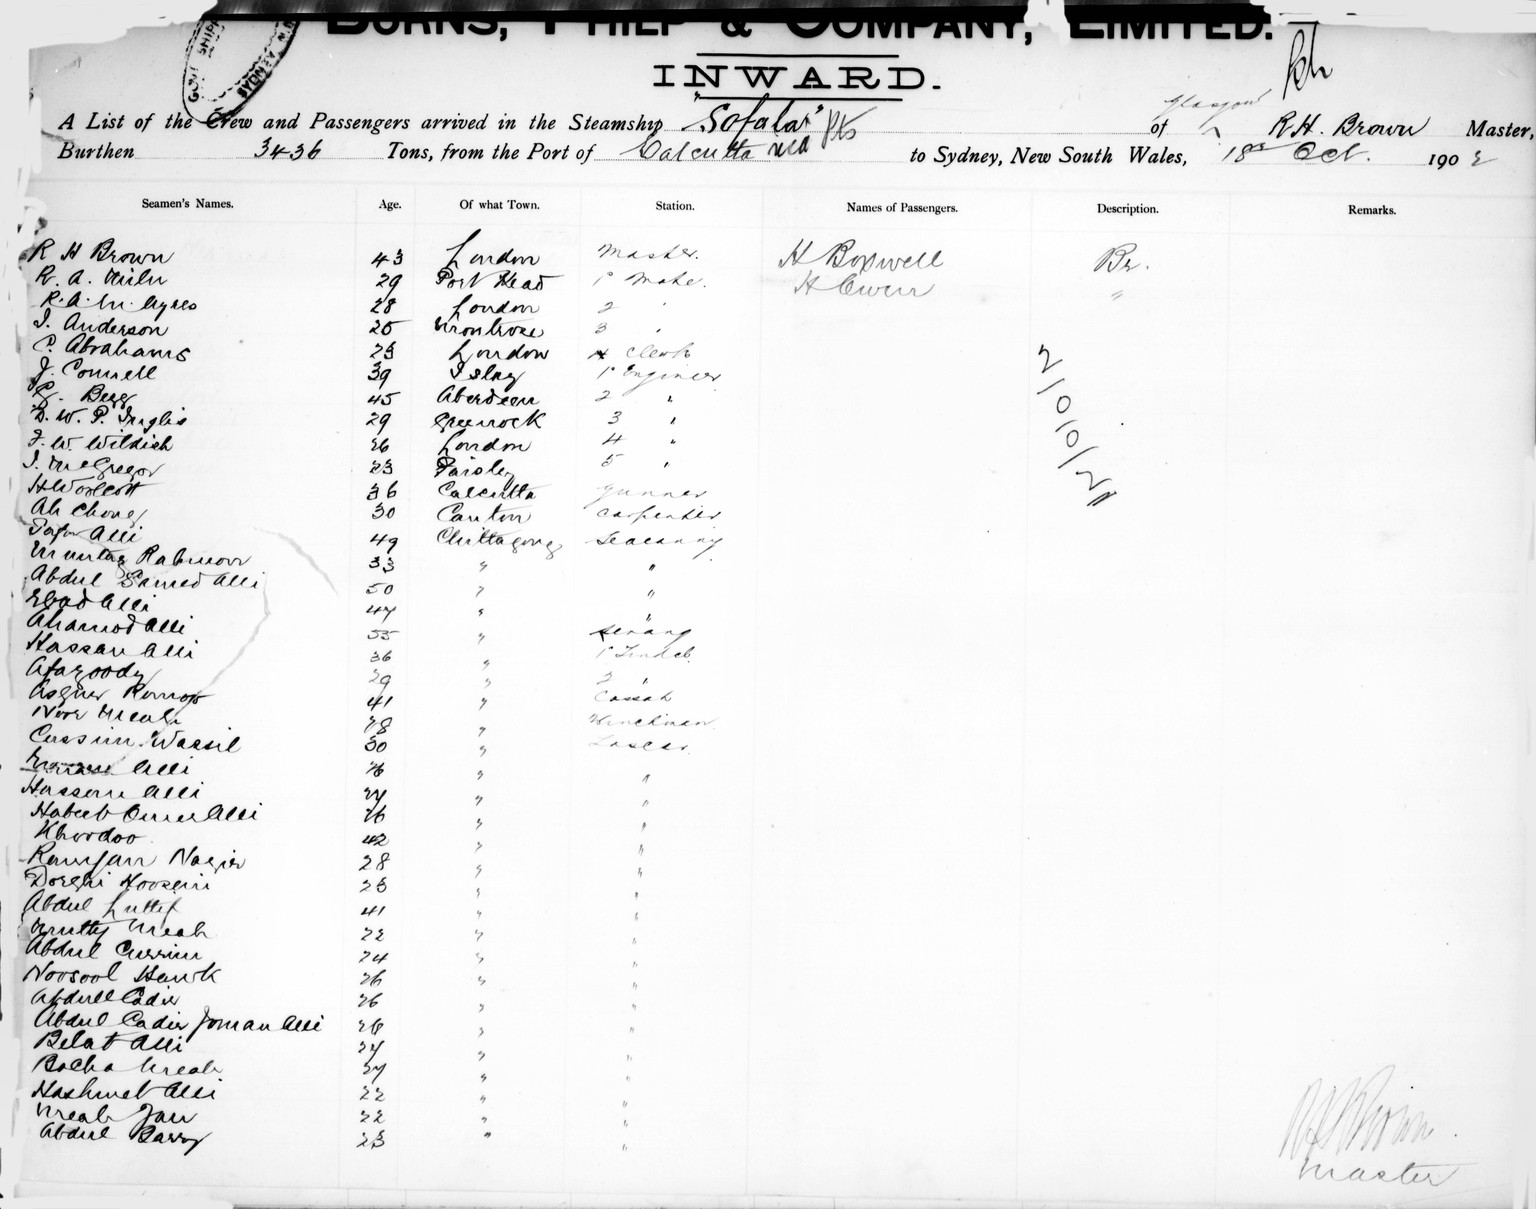 BURNS, PHILP & COMPANY, LIMITED.
INWARD.
A List of the Crew and Passengers arrived in the Steamship "Sofala" of Glasgow R H. Brown Master,
Burthen 3436 Tons, from the Port of Calcutta via Pts to Sydney, New South Wales, 18 Oct. 1902
Seamen's Names. Age. Of what Town. Station. Names of Passengers. Description. Remarks.
R H Brown 43 London Master. H Boxwell Br.
R. A. Milne 29 Port Head 1st Mate. H Owen "
R. A. M. Ayres 28 London 2 "
J. Anderson 25 Montrose 3 "
C. Abrahams 23 London Clerk
J. Connell 39 Islay 1st Engineer
G. Begg 45 Aberdeen 2 "
D. W. P. Inglis 29 Greenock 3 "
J. W. Wildish 26 London 4 "
J. McGregor 23 Paisley 5 "
H Woolcott 36 Calcutta Gunner
Ah Chong 30 Canton Carpenter
Alli 49 Chittagong Seacunny
Muntaz Rahmoor 33 " "
Abdul Samed Alli 50 " "
Ebad Alli 47 " "
Ahamod Alli 55 " Serang
Hassan Alli 36 " 1st Tindel
Afazoody 29 " 2 "
Asgur 41 " Cassab
Noor Meah 28 " Winchman
Cassim Wassil 30 " Lascar
Alli 26 " "
Hassem Alli 27 " "
Habeeb Omer Alli 26 " "
Khoodoo 42 " "
Ramjan Nazir 28 " "
Hoosein 23 " "
Abdul Luttif 41 " "
Meah 22 " "
Abdul Currim 24 " "
Noosool Hawk 26 " "
Abdull Cadir 26 " "
Abdul Cadir Joman Alli 26 " "
Belat Alli 27 " "
Bacha Meah 27 " "
Hashmet Alli 22 " "
Meah Jan 22 " "
Abdul Barry 23 " "
R H Brown
Master